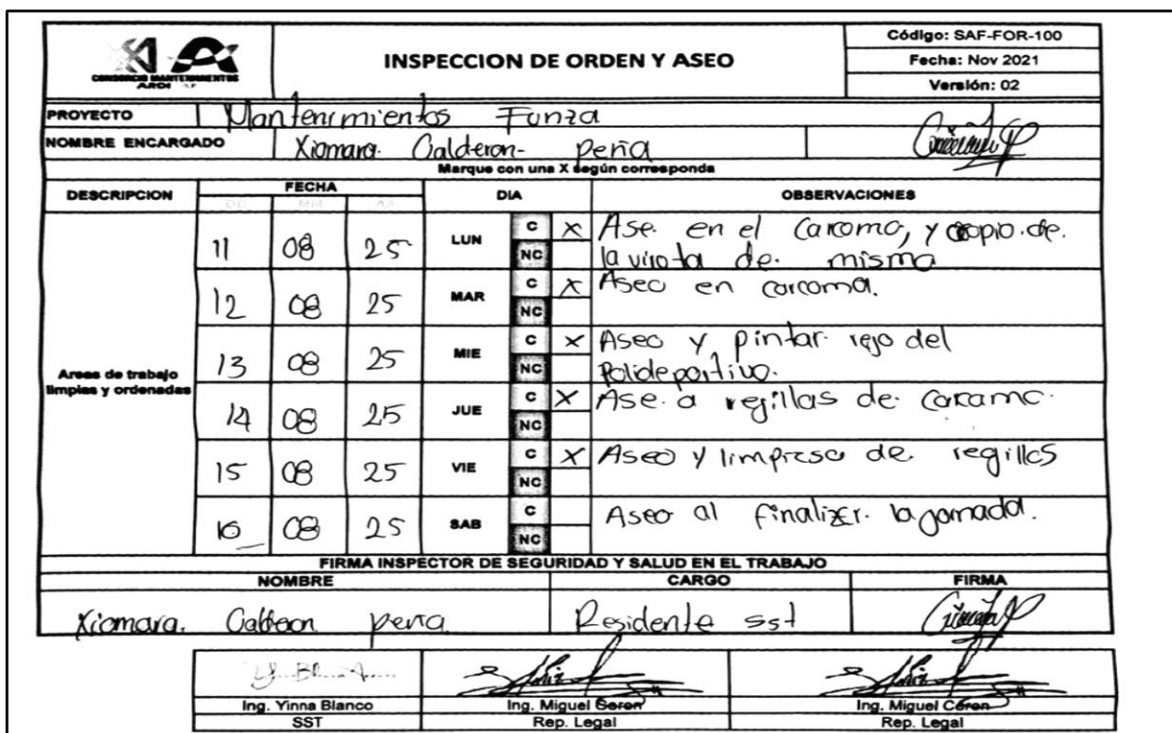 CONSORCIO MANTENIMIENTOS
ARDI
INSPECCION DE ORDEN Y ASEO
Código: SAF-FOR-100
Fecha: Nov 2021
Versión: 02
PROYECTO Mantenimientos Funza
NOMBRE ENCARGADO Xiomara Calderon peña
Marque con una X según corresponda
DESCRIPCION FECHA DIA OBSERVACIONES
DD MM AA
Areas de trabajo
limpias y ordenadas
11 08 25 LUN C X Ase en el carcomo, y acopio de
NC la viruta de misma
12 08 25 MAR C X Aseo en carcoma.
NC
13 08 25 MIE C X Aseo y pintar rejo del
NC Polideportivo.
14 08 25 JUE C X Ase a rejillas de
NC
15 08 25 VIE C X Aseo y limpiesa de regillas
NC
16 08 25 SAB C Aseo al finalizar la jornada.
NC
FIRMA INSPECTOR DE SEGURIDAD Y SALUD EN EL TRABAJO
NOMBRE CARGO FIRMA
Xiomara. Calderon peña Residente sst
Ing. Yinna Blanco Ing. Miguel Ceron Ing. Miguel Ceron
SST Rep. Legal Rep. Legal